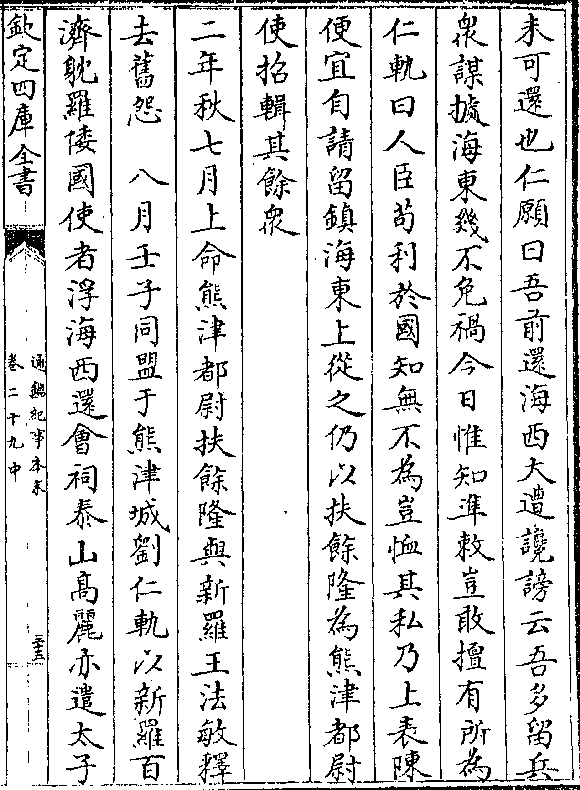 未可還也仁願曰吾前還海西大遭讒謗云吾多留兵
衆謀據海東幾不免禍今日惟知準敕豈敢擅有所為
仁軌曰人臣苟利於國知無不為豈恤其私乃上表陳
便宜自請留鎮海東上從之仍以扶餘隆為熊津都尉
使招輯其餘衆
二年秋七月上命熊津都尉扶餘隆與新羅王法敏釋
去舊怨　八月壬子同盟于熊津城劉仁軌以新羅百
濟躭羅倭國使者浮海西還會祠泰山高麗亦遣太子
欽定四庫全書
通鑑紀事本末
卷二十九中
三十五